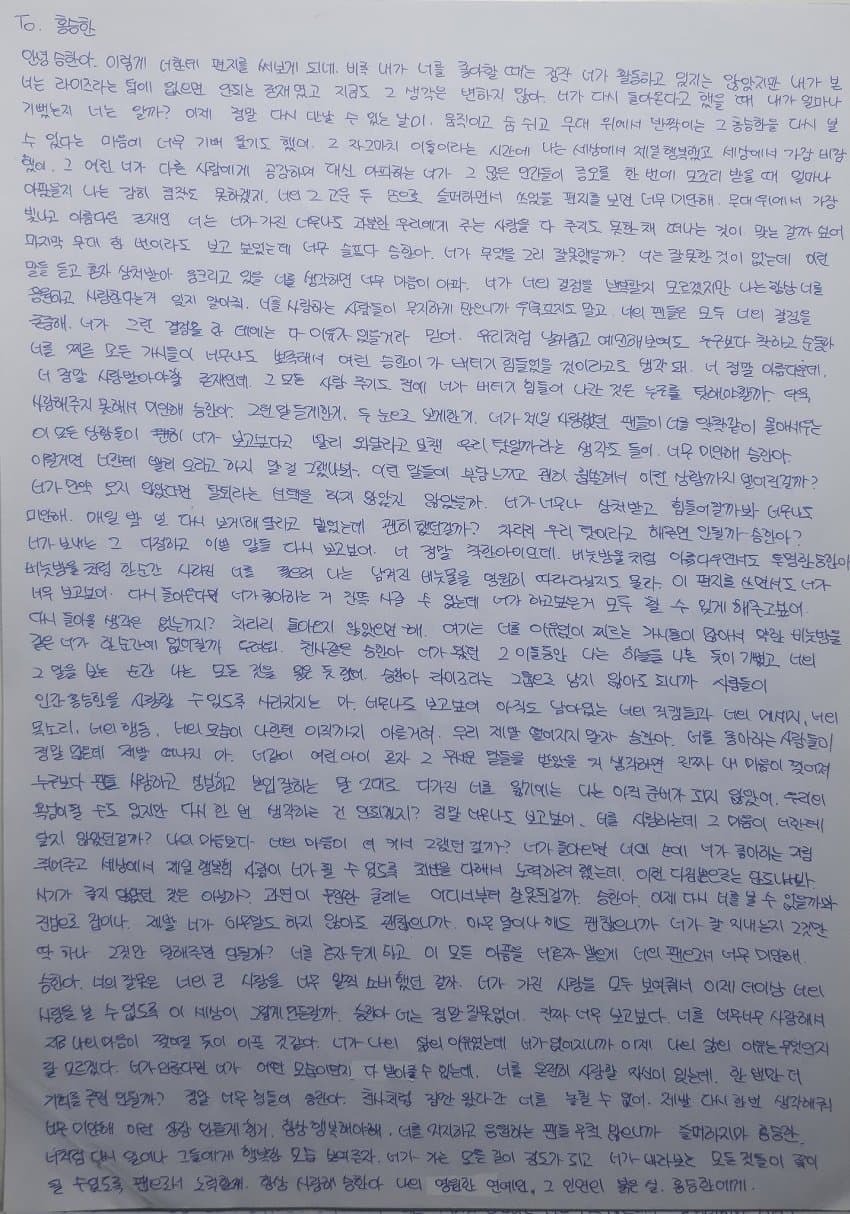 To. 홍승한
안녕 승한아. 이렇게 너한테 편지를 써보게 되네. 비록 내가 너를 좋아할 때는 정작 너가 활동하고 있지는 않았지만 내가 본
너는 라이즈라는 팀에 없으면 안되는 존재였고 지금도 그 생각은 변하지 않아. 너가 다시 돌아온다고 했을 때 내가 얼마나
기뻤는지 너는 알까? 이제 정말 다시 만날 수 있는 날이. 움직이고 숨 쉬고 무대 위에서 반짝이는 그 홍승한을 다시 볼
수 있다는 마음에 너무 기뻐 울기도 했어. 그 자그마치 이틀이라는 시간에 나는 세상에서 제일 행복했고 세상에서 가장 비참
했어. 그 어린 너가 다른 사람에게 공감하며 대신 아파하는 너가 그 많은 인간들이 증오를 한 번에 모조리 받을 때 얼마나
아팠을지 나는 감히 짐작도 못하겠지. 너의 그 고운 두 손으로 슬퍼하면서 쓰였을 편지를 보면 너무 미안해. 무대 위에서 가장
빛나고 아름다운 존재인 너는 너가 가진 너무나도 과분한 우리에게 주는 사랑을 다 주지도 못한 채 떠나는 것이 맞는 걸까 싶어
마지막 무대 한 번이라도 보고 싶었는데 너무 슬프다 승한아. 너가 무엇을 그리 잘못했을까? 너는 잘못한 것이 없는데 이런
말들 듣고 혼자 상처받아 웅크리고 있을 너를 생각하면 너무 마음이 아파. 너가 너의 결정을 번복할지 모르겠지만 나는 항상 너를
응원하고 사랑한다는거 잊지 말아줘. 너를 사랑하는 사람들이 무지하게 많으니까 말고. 너의 팬들은 모두 너의 결정을
존중해. 너가 그런 결정을 한 데에는 다 이유가 있을거라 믿어. 유리처럼 날카롭고 예민해보여도 누구보다 착하고 순둥한
너를 찌른 모든 가시들이 너무나도 뾰족해서 여린 승한이가 버티기 힘들었을 것이라고도 생각 돼. 너 정말 아름다운데,
너 정말 사랑받아야할 존재인데. 그 모든 사랑 주기도 전에 너가 버티기 힘들어 나간 것은 누구를 탓해야할까. 더욱
사랑해주지 못해서 미안해 승한아. 그런 말 듣게한거, 두 눈으로 보게한거. 너가 제일 사랑했던 팬들이 너를 악랄같이 몰아세우는
이 모든 상황들이 괜히 너가 보고싶다고 빨리 와달라고 보챈 우리 탓일까라는 생각도 들어. 너무 미안해 승한아.
이럴거면 너한테 빨리 오라고 하지 말 걸 그랬나봐. 이런 말들에 부담 느끼고 괜히 휩쓸려서 이런 상황까지 벌어진걸까?
너가 만약 오지 않았다면 탈퇴라는 선택을 하지 않았진 않았을까. 너가 너무나 상처받고 힘들어할까봐 너무나도
미안해. 매일 밤 널 다시 보게 해달라고 빌었는데 괜히 했던걸까? 차라리 우리 탓이라고 해주면 안될까 승한아?
너가 보내는 그 다정하고 이쁜 말들 다시 보고싶어. 너 정말 착한아이인데. 비눗방울처럼 아름다우면서도 투명한 승한이
비눗방울처럼 한순간 사라진 너를 찾으려 나는 남겨진 비눗물을 영원히 따라다닐지도 몰라. 이 편지를 쓰면서도 너가
너무 보고싶어. 다시 돌아온다면 너가 좋아하는 거 잔뜩 사줄 수 있는데 너가 하고싶은거 모두 할 수 있게 해주고싶어.
다시 돌아올 생각은 없는거지? 차라리 돌아오지 않았으면 해. 여기는 너를 이유없이 찌르는 가시들이 많아서 약한 비눗방울
같은 너가 한순간에 없어질까 두려워. 천사같은 승한아 너가 왔던 그 이틀동안 나는 하늘을 나는 듯이 기뻤고 너의
그 말을 보는 순간 나는 모든 것을 잃은 듯 했어. 승한아 라이즈라는 그룹으로 남지 않아도 되니까 사람들이
인간 홍승한을 사랑할 수 있도록 사라지지는 마. 너무나도 보고싶어 아직도 남아있는 너의 직캠들과 너의 메세지, 너의
목소리, 너의 행동, 너의 모습이 나한텐 아직까지 아른거려. 우리 제발 멀어지지 말자 승한아. 너를 좋아하는 사람들이
정말 많은데 제발 떠나지 마. 너같이 여린 아이 혼자 그 무서운 말들을 받았을 거 생각하면 진짜 내 마음이 찢어져
누구보다 팬들 사랑하고 성실하고 본업 잘하는 말 그대로 다 가진 너를 잃기에는 나는 아직 준비가 되지 않았어. 우리의
욕심이 될 수도 있지만 다시 한 번 생각하는 건 안되겠지? 정말 너무나도 보고싶어. 너를 사랑하는데 그 마음이 너한테
닿지 않았던걸까? 나의 마음보다 너의 마음이 더 커서 그랬던 걸까? 너가 돌아오면 너의 손에 너가 좋아하는 그림
쥐어주고 세상에서 제일 행복한 사람이 너가 될 수 있도록 최선을 다해서 노력하려 했는데. 이런 다짐만으로는 안되나봐.
시기가 좋지 않았던 것은 아닐까? 과연 이 무한한 굴레는 어디서부터 잘못된걸까. 승한아. 이제 다시 너를 볼 수 없을까봐
진심으로 겁이나. 제발 너가 아무말도 하지 않아도 괜찮으니까. 아무 말이나 해도 괜찮으니까 너가 잘 지내는지 그것만
딱 하나 그것만 말해주면 안될까? 너를 혼자 두게 하고 이 모든 아픔을 너 혼자 받은게 너의 팬으로서 너무 미안해
승한아. 너의 잘못은 너의 큰 사랑을 너무 일찍 소비했던 걸까. 너가 가진 사랑을 모두 보여줘서 이제 더이상 너의
사랑을 볼 수 없도록 이 세상이 그렇게 만든걸까. 승한아 너는 정말 잘못없어. 진짜 너무 보고싶다. 너를 너무너무 사랑해서
지금 나의 마음이 찢어질 듯이 아픈 것 같다. 너가 나의 삶의 이유였는데 너가 없어지니까 이제 나의 삶의 이유는 무엇인지
잘 모르겠다. 너가 온다면 너가 어떤 모습이던지 다 받아줄 수 있는데, 너를 온전히 사랑할 자신이 있는데. 한 번만 더
기회를 주면 안될까? 정말 너무 힘들어 승한아. 천사처럼 잠깐 왔다간 너를 놓칠 수 없어. 제발 다시 한번 생각해줘
너무 미안해 이런 상황 만들게 한거. 항상 행복해야해. 너를 지지하고 응원하는 팬들 무척 많으니까 슬퍼하지마 승한아.
너처럼 다시 일어나 그들에게 행복한 모습 보여주자. 너가 가는 모든 길이 정도가 되고 너가 내려보는 모든 것들이 꽃이
될 수 있도록 팬으로서 노력할게. 항상 사랑해 승한아 나의 영원한 연예인, 그 인연인 붉은 실. 홍승한에게.